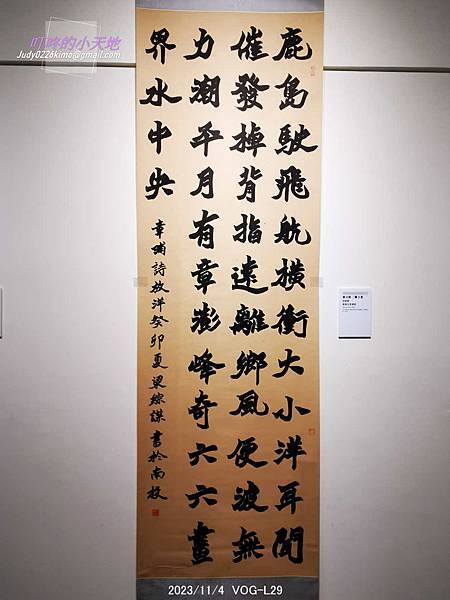 叮咚的小天地
Judy0226kimo@gmail.com
鹿島駛飛航橫衝大小洋耳聞
催發掉背指遠離鄉風便波無
力潮平月有章澎峰奇六六畫
界水中央
章甫詩放洋癸卯夏梁綜謀書於南投
2023/11/4 VOG-L29